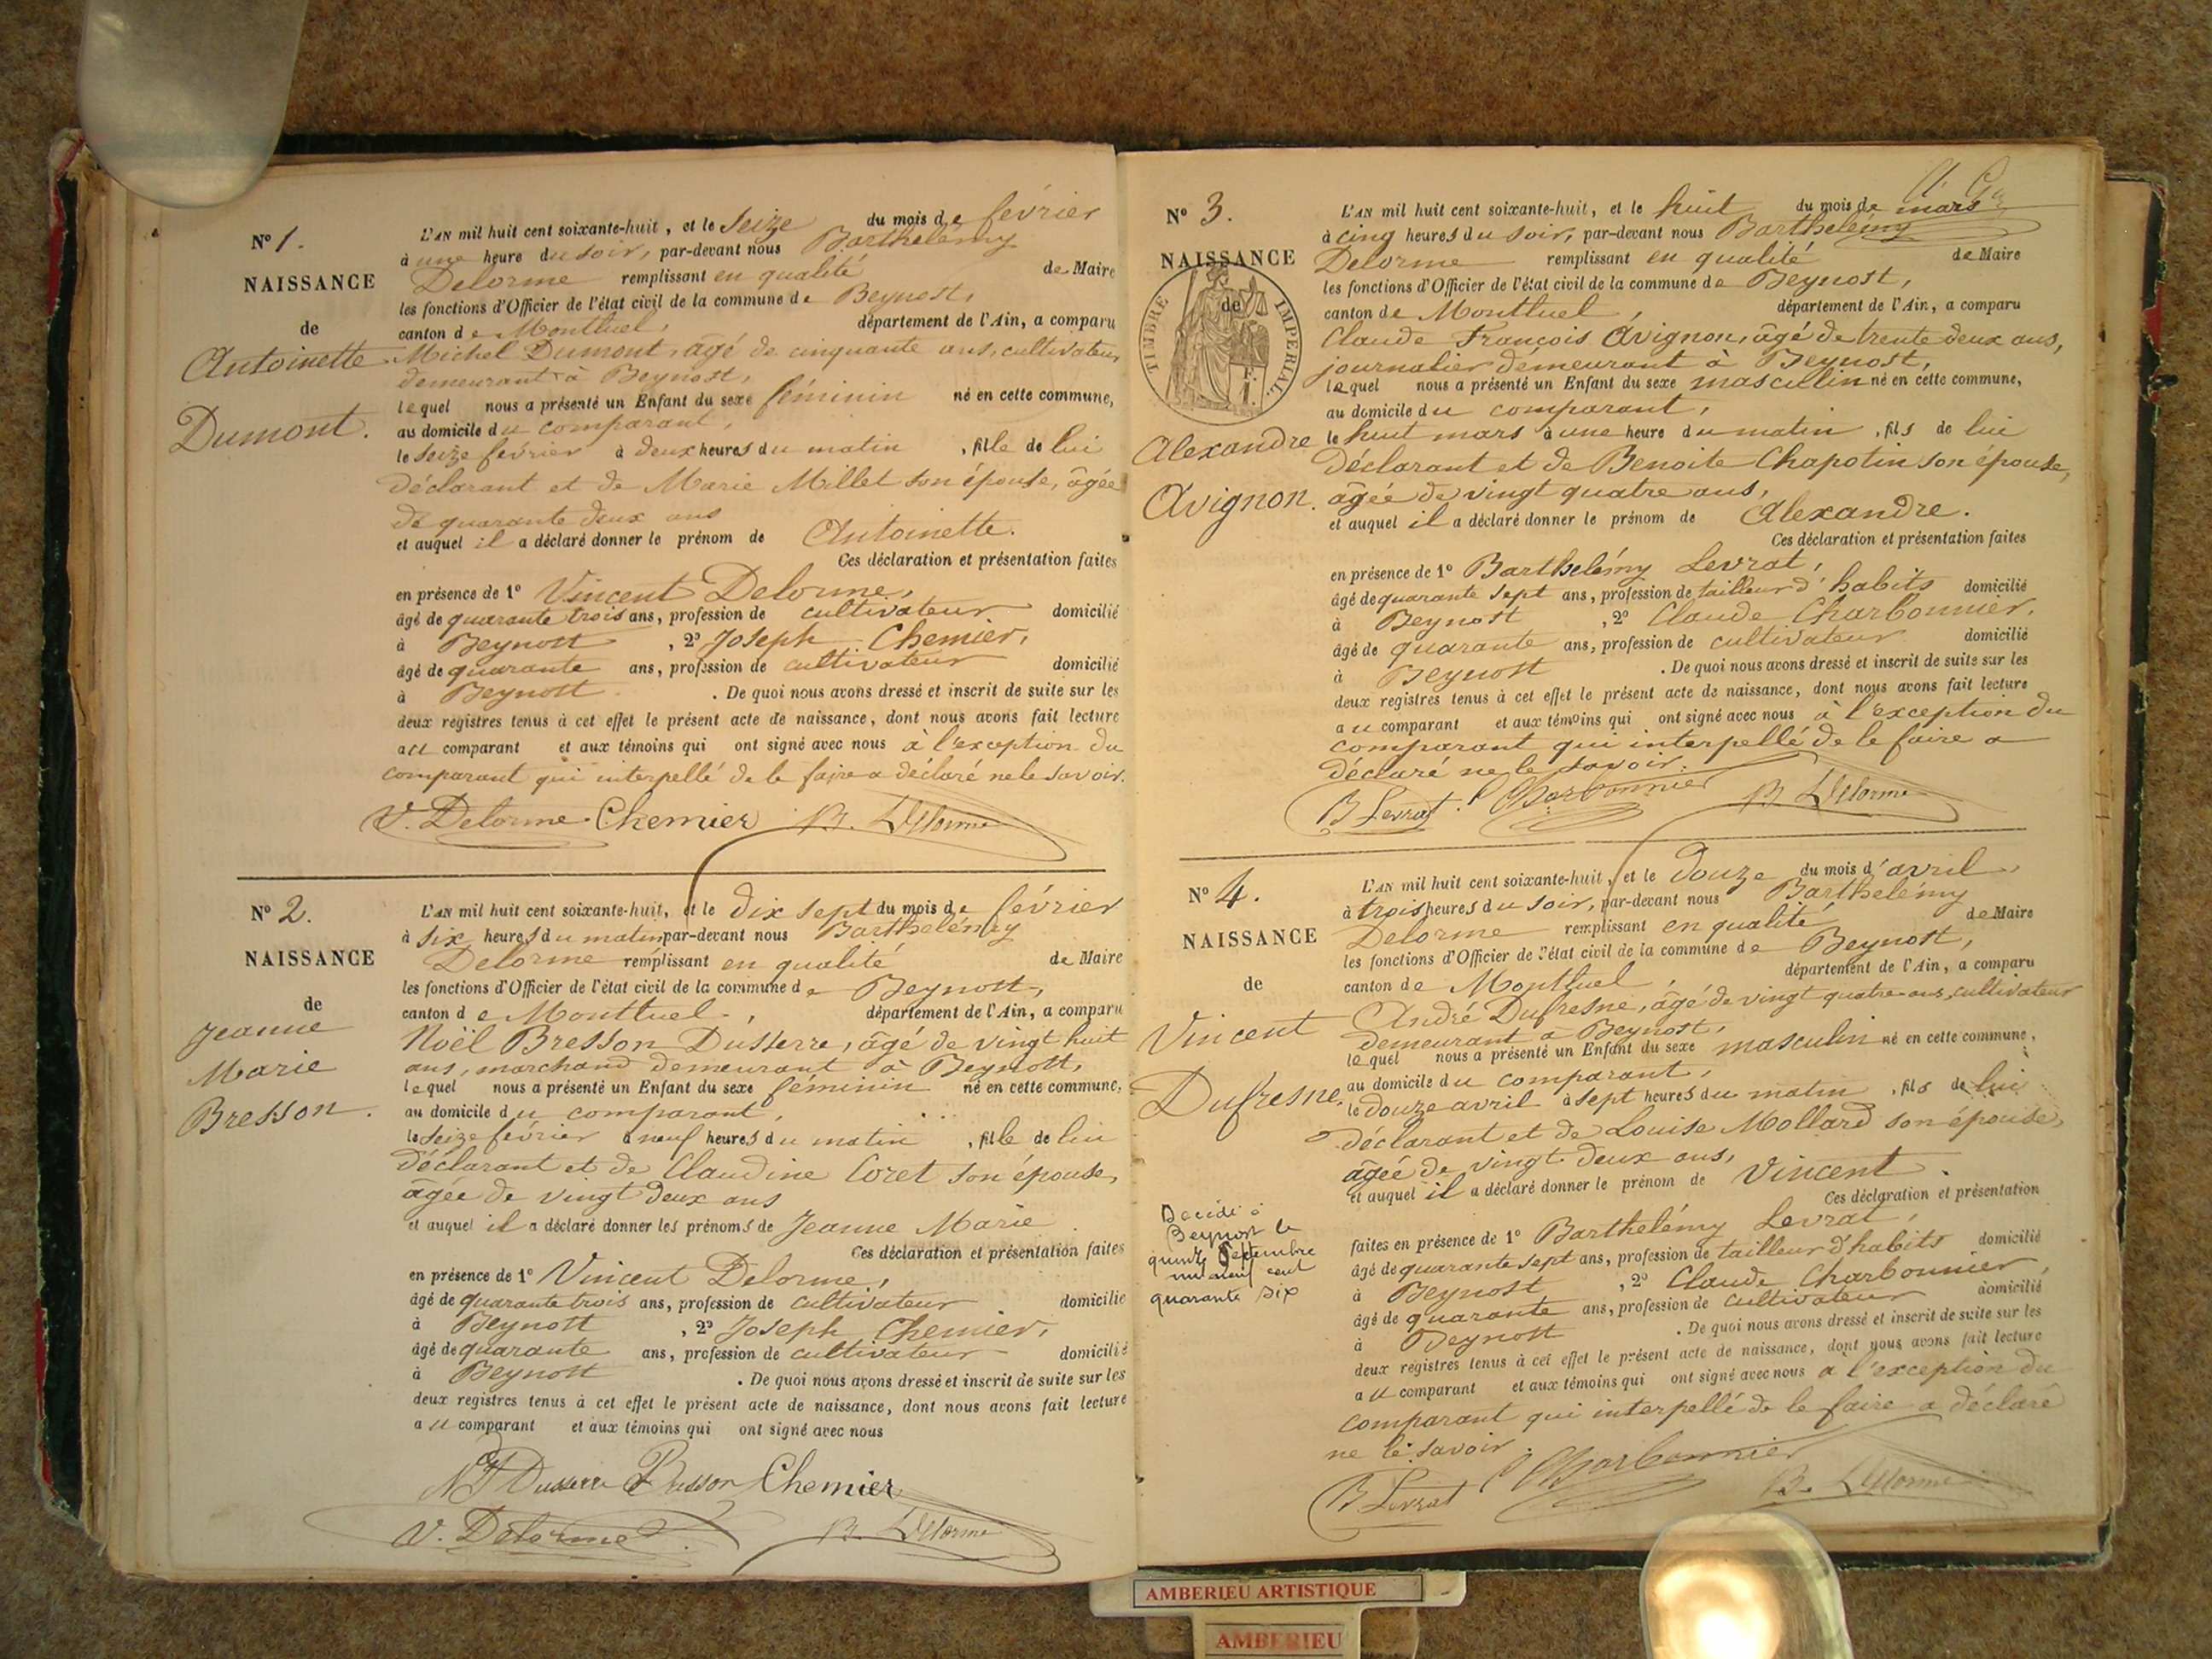 N° 1.
NAISSANCE
de
Antoinette
Dumont.
L'AN mil huit cent soixante-huit, et le Seize du mois de février
à une heure du soir, par-devant nous Barthelémy
Delorme remplissant en qualité de Maire
les fonctions d'Officier de l'état civil de la commune de Beynost,
canton de Montluel, département de l'Ain, a comparu
Michel Dumont, âgé de cinquante ans, cultivateur,
demeurant à Beynost,
lequel nous a présenté un Enfant du sexe féminin né en cette commune,
au domicile du comparant,
le Seize février à deux heures du matin, fille de lui
déclarant et de Marie Millet son épouse, âgée
de quarante deux ans
et auquel il a déclaré donner le prénom de Antoinette.
Ces déclaration et présentation faites
en présence de 1° Vincent Delorme,
âgé de quarante trois ans, profession de cultivateur domicilié
à Beynost, 2° Joseph Chemier,
âgé de quarante ans, profession de cultivateur domicilié
à Beynost. De quoi nous avons dressé et inscrit de suite sur les
deux registres tenus à cet effet le présent acte de naissance, dont nous avons fait lecture
au comparant et aux témoins qui ont signé avec nous à l'exception du
comparant qui interpellé de le faire a déclaré ne le savoir.
V. Delorme Chemier B. Delorme
N° 2.
NAISSANCE
de
Jeanne
Marie
Bresson.
L'AN mil huit cent soixante-huit, et le dix sept du mois de février
à six heures du matin par-devant nous Barthelémy
Delorme remplissant en qualité de Maire
les fonctions d'Officier de l'état civil de la commune de Beynost,
canton de Montluel, département de l'Ain, a comparu
Noël Bresson Dusserre, âgé de vingt huit
ans, marchand demeurant à Beynost,
lequel nous a présenté un Enfant du sexe féminin né en cette commune,
au domicile du comparant,
le Seize février à neuf heures du matin, fille de lui
déclarant et de Claudine Coret son épouse,
âgée de vingt deux ans
et auquel il a déclaré donner les prénoms de Jeanne Marie.
Ces déclaration et présentation faites
en présence de 1° Vincent Delorme,
âgé de quarante trois ans, profession de cultivateur domicilié
à Beynost, 2° Joseph Chemier,
âgé de quarante ans, profession de cultivateur domicilié
à Beynost. De quoi nous avons dressé et inscrit de suite sur les
deux registres tenus à cet effet le présent acte de naissance, dont nous avons fait lecture
au comparant et aux témoins qui ont signé avec nous
Dusserre Bresson Chemier
V. Delorme B. Delorme
N° 3.
NAISSANCE
de
TIMBRE IMPERIAL.
Alexandre
Avignon.
L'AN mil huit cent soixante-huit, et le huit du mois de mars
à cinq heures du soir, par-devant nous Barthelémy
Delorme remplissant en qualité de Maire
les fonctions d'Officier de l'état civil de la commune de Beynost,
canton de Montluel, département de l'Ain, a comparu
Claude François Avignon, âgé de trente deux ans,
journalier demeurant à Beynost,
lequel nous a présenté un Enfant du sexe masculin né en cette commune,
au domicile du comparant,
le huit mars à une heure du matin, fils de lui
déclarant et de Benoite Chapotin son épouse,
âgée de vingt quatre ans,
et auquel il a déclaré donner le prénom de Alexandre.
Ces déclaration et présentation faites
en présence de 1° Barthelémy Levrat,
âgé de quarante sept ans, profession de tailleur d'habits domicilié
à Beynost, 2° Claude Charbonnier,
âgé de quarante ans, profession de cultivateur domicilié
à Beynost. De quoi nous avons dressé et inscrit de suite sur les
deux registres tenus à cet effet le présent acte de naissance, dont nous avons fait lecture
au comparant et aux témoins qui ont signé avec nous à l'exception du
comparant qui interpellé de le faire a
déclaré ne le savoir.
B Levrat. Charbonnier B Delorme
N° 4.
NAISSANCE
de
Vincent
Dufresne.
Décédé à
Beynost le
quinze Septembre
mil neuf cent
quarante six
L'AN mil huit cent soixante-huit, et le douze du mois d'avril,
à trois heures du soir, par-devant nous Barthelémy
Delorme remplissant en qualité de Maire
les fonctions d'Officier de l'état civil de la commune de Beynost,
canton de Montluel, département de l'Ain, a comparu
André Dufresne, âgé de vingt quatre ans, cultivateur
demeurant à Beynost,
lequel nous a présenté un Enfant du sexe masculin né en cette commune,
au domicile du comparant,
le douze avril à sept heures du matin, fils de lui
déclarant et de Louise Mollard son épouse,
âgée de vingt deux ans,
et auquel il a déclaré donner le prénom de Vincent.
Ces déclaration et présentation
faites en présence de 1° Barthelémy Levrat,
âgé de quarante sept ans, profession de tailleur d'habits domicilié
à Beynost, 2° Claude Charbonnier,
âgé de quarante ans, profession de cultivateur domicilié
à Beynost. De quoi nous avons dressé et inscrit de suite sur les
deux registres tenus à cet effet le présent acte de naissance, dont nous avons fait lecture
au comparant et aux témoins qui ont signé avec nous à l'exception du
comparant qui interpellé de le faire a déclaré
ne le savoir.
B Levrat Charbonnier B. Delorme
AMBERIEU ARTISTIQUE
AMBERIEU